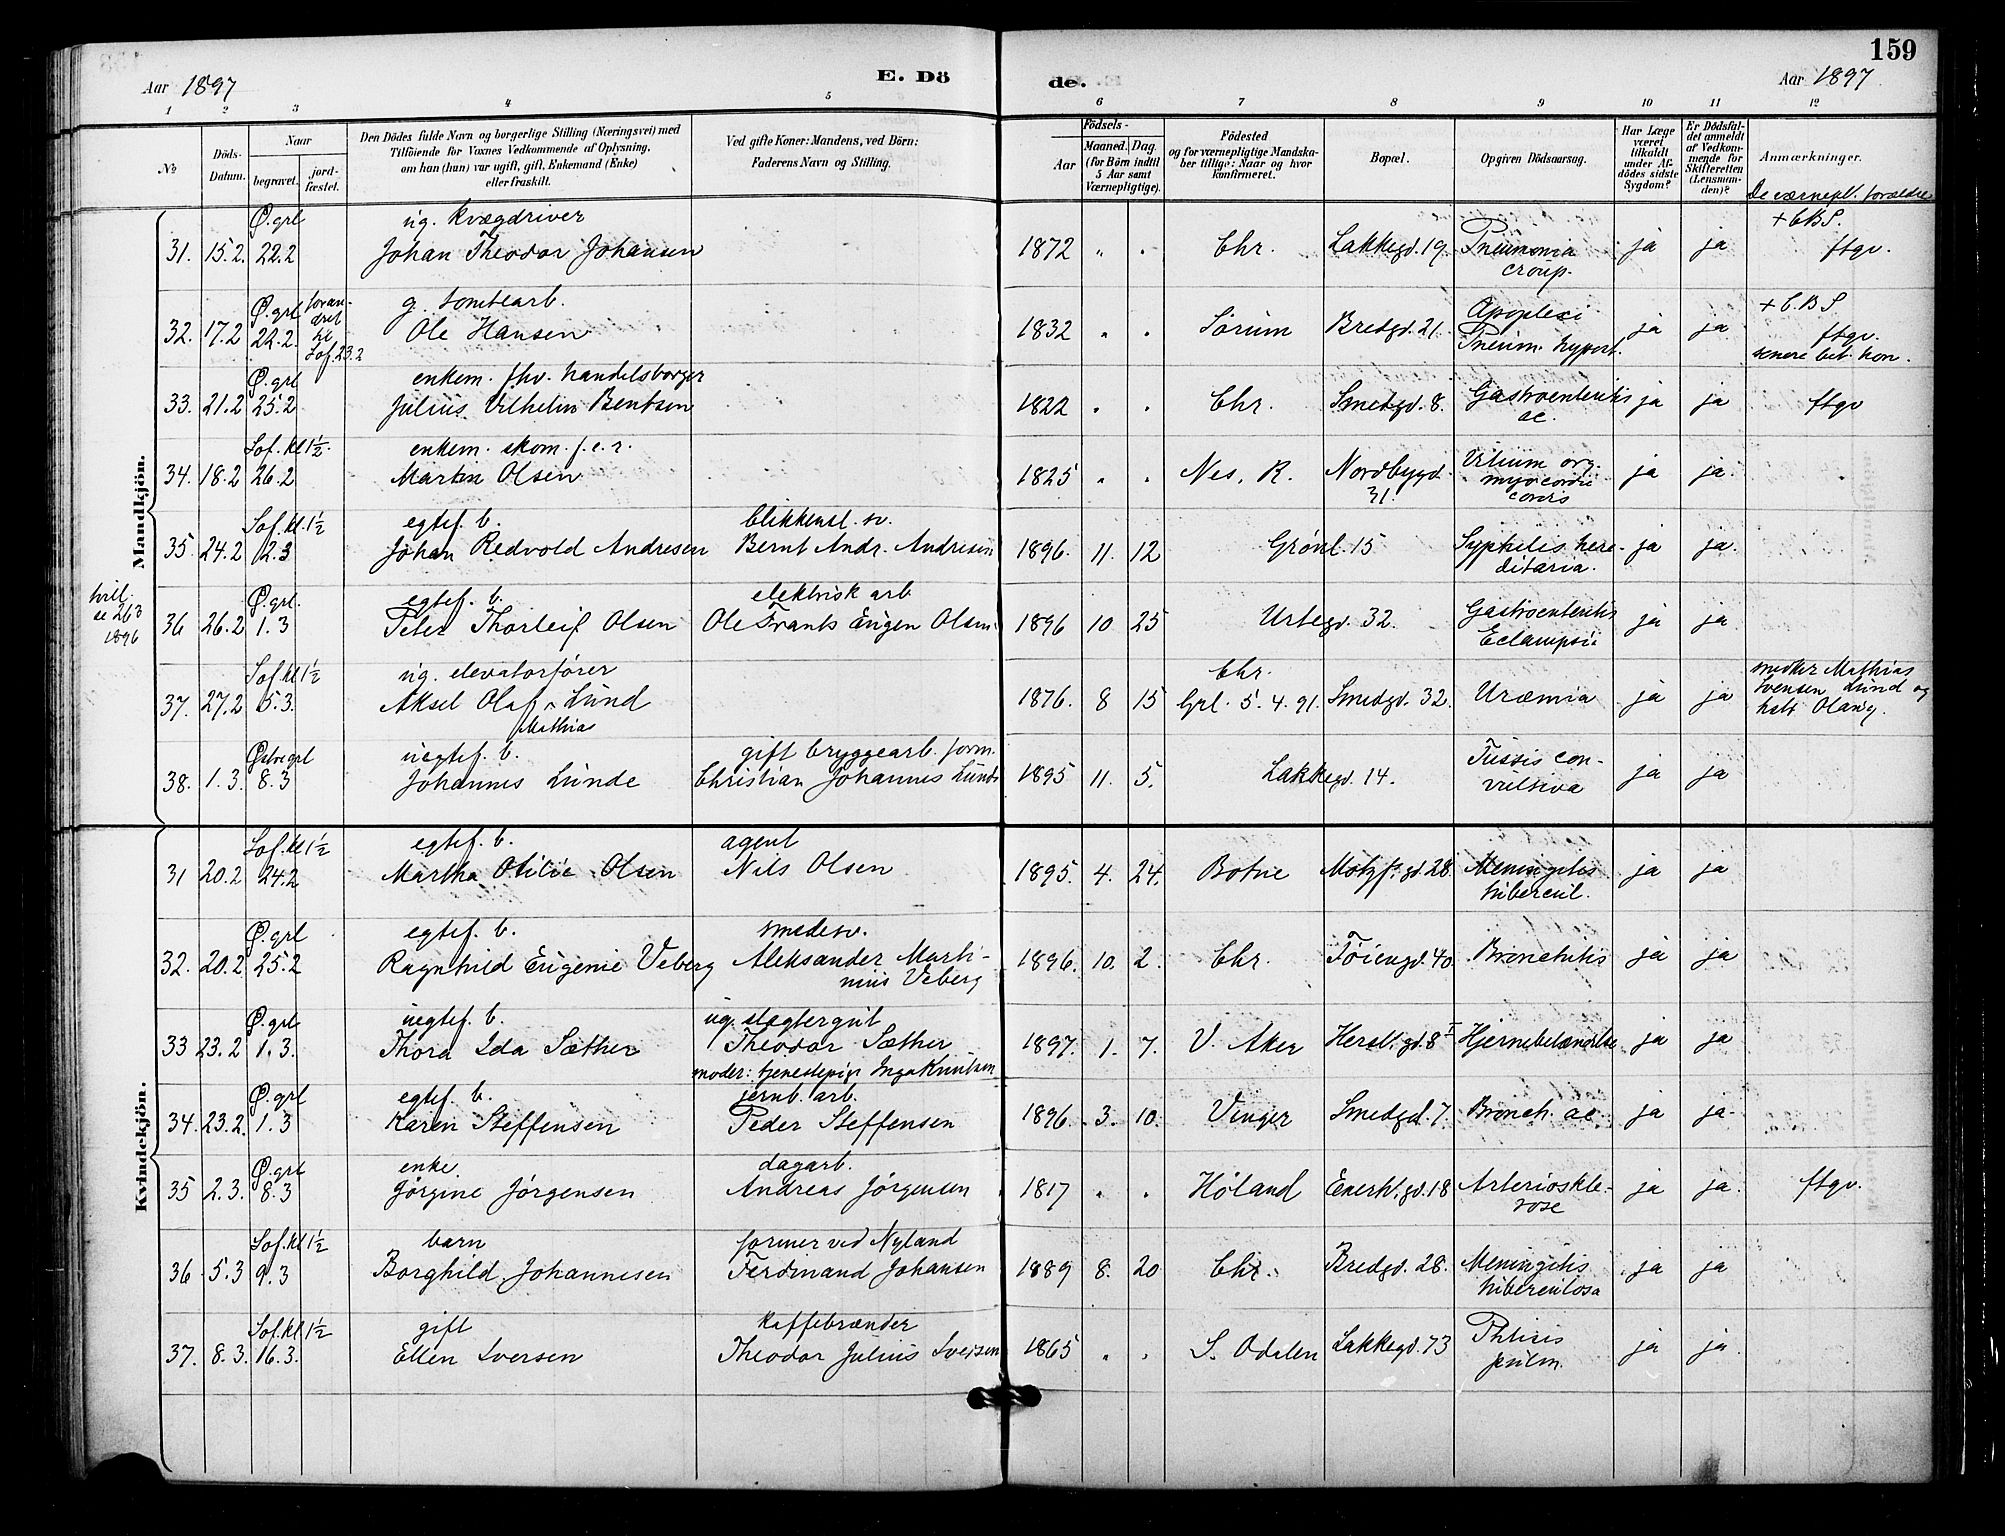 159
Aar 1897
E. Dö
de.
Aar 1897
1 2 3 4 5
6 7 8 9 10 11 12
No
Döds-
Datum.
Naar
begravet.
jord-
fæstet.
Den Dödes fulde Navn og borgerlige Stilling (Næringsvei) med
Tilföiende for Voxnes Vedkommende af Oplysning,
om han (hun) var ugift, gift, Enkemand (Enke)
eller fraskilt.
Ved gifte Koner: Mandens, ved Börn:
Faderens Navn og Stilling.
Födsels-
Aar
Maaned. Dag.
(for Börn indtil
5 Aar samt
Værnepligtige).
Födested
og for værnepligtige Mandska-
ber tillige: Naar og hvor
konfirmeret.
Bopæl.
Opgiven Dödsaarsag.
Har Læge
været
tilkaldt
under Af-
dödes sidste
Sygdom?
Er Dödsfal-
det anmeldt
af Vedkom-
mende for
Skifteretten
(Lensman-
den)?
Anmærkninger.
De værnepl. forældre
Mandkjön.
Ø. grl ug. kvægdriver + CBS.
31. 15.2. 22.2 Johan Theodor Johansen 1872 " " Chr. Lakkegd. 19. Pneumonia ja ja ftgv.
croup.
Ø. grl g. tomtearb. Apoplexi + C.B.S
32. 17.2 22.2. Ole Hansen 1832 " " Sørum Bredgd. 21. Pneum. hypost. ja ja ftgv.
Sof. 23.2 senere bet. hon.
Ø. grl enkem. fhv. handelsborger
33. 21.2 25.2 Julius Vilhelm Bentsen 1822 " " Chr. Smedgd. 8. Gastroenteritis ja ja ftgv
ac.
Sof. kl 1½. enkem. skom. f.e.r.
34. 18.2 26.2 Martin Olsen 1825 " " Nes, R. Nordbygd. Vitium org. ja ja.
31.
Sof. kl. 1½ egtef. b. blikkensl. sv.
35. 24.2 2.3 Johan Redvold Andresen Bernt Andr. Andresen 1896. 11. 12 Grønl. 15 Syphilis here- ja ja.
ditaria.
tvill.
se 263
1896
Ø. grl. egtef. b. elektrisk arb
36 26.2 1.3 Peter Thorleif Olsen Ole Frants Eugen Olsen 1896 10 25 Urtegd. 32. Gastroenteritis ja ja.
Eclampsia
Sof. kl 1½ ug. elevatorfører Chr. smeder Mathias
37. 27.2 5.3. Aksel Olaf ^ Lund 1876. 8 15 Grl. 5.4.91. Smedgd. 32. Uræmia ja ja Svensen Lund og
Mathias
Østre grl uegtef. b. gift bryggearb. form.
38. 1.3. 8.3 Johannes Lunde Christian Johannes Lunde 1895 11. 5. Lakkegd. 14. Tussis con- ja ja
vulsiva
Kvindekjön.
Sof. kl 1½ egtef. b. agent
31 20.2 24.2 Martha Otilie Olsen Nils Olsen 1895. 4. 24. Botne Motzf. gd. 28. Meningitis ja ja
tubercul.
Ø. grl egtef. b. smedesv.
32. 20.2 25.2 Ragnhild Eugenie Veberg Aleksander Marti- 1896. 10. 2. Chr. Tøiengd. 40. Bronchitis ja ja
nius Veberg
Ø. grl uegtef. b. ug. slagtergut
33 23.2 1.3. Thora Ida Sæther Theodor Sæther 1897. 1. 7. V. Aker Hersl. gd. 8 I Hjernebetændelse ja ja
moder: tjenestepige Inga Knutsen
Ø. grl egtef. b. jernb. arb.
34. 23.2. 1.3 Karen Steffensen Peder Steffensen 1896. 3. 10. Vinger Smedgd. 7. Bronch. ac. ja ja
Ø. grl enke dagarb.
35 2.3. 8.3 Jørgine Jørgensen Andreas Jørgensen 1817 " " Høland Enerh. gd. 18 Arterioskle- ja ja. ftgv.
rose
Sof. kl 1½ barn former ved Nyland
36 5.3 9.3 Borghild Johannesen Ferdinand Johansen 1889 8. 20 Chr. Bredgd. 28. Meningitis ja ja
tuberculosa
Sof. kl 1½ gift kaffebrænder
37. 8.3. 16.3. Ellen Iversen Theodor Julius Iversen 1865 " " S. Odalen Lakkegd. 73 Phtisis ja ja.
pulm.